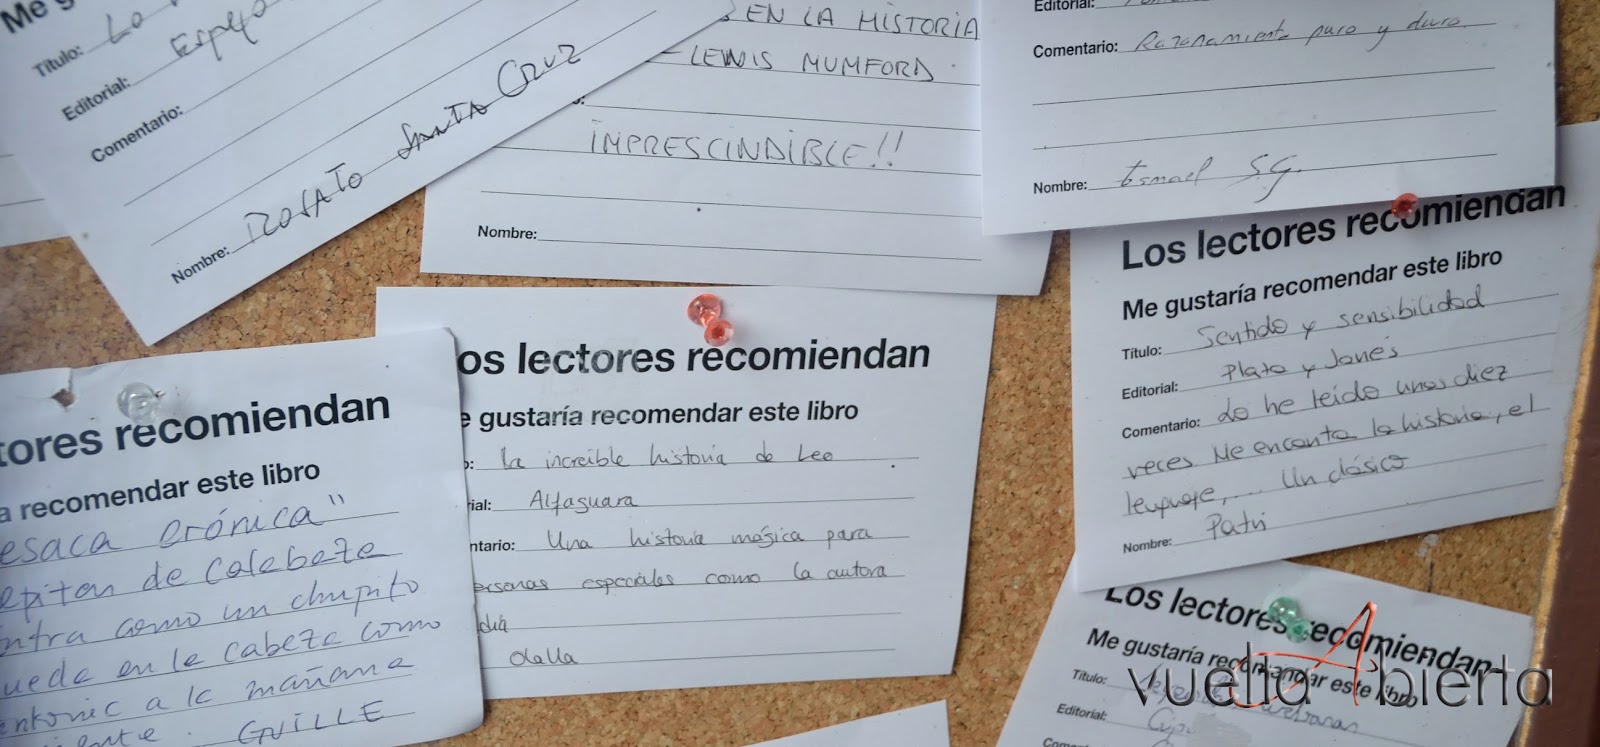 Título: La
Editorial: Espejo
Comentario:
Nombre: ROSATO SANTA CRUZ
EN LA HISTORIA
- LEWIS MUMFORD.
¡IMPRESCINDIBLE!!
Nombre:
Editorial:
Comentario: Razonamiento puro y duro.
Nombre: Ismael S.G.
tores recomiendan
a recomendar este libro
esaca crónica"
epiton de Calabaza
ntra como un chupito
uede en la cabeza como
a la mañana
GUILLE
os lectores recomiendan
e gustaría recomendar este libro
o: La increíble historia de Leo
ial: Alfaguara
ntario: Una historia mágica para
ersonas especiales como la autora
Olalla
Los lectores recomiendan
Me gustaría recomendar este libro
Título: Sentido y sensibilidad
Editorial: Plata y Janés
Comentario: Lo he leído unas diez
veces. Me encanta la historia, el
lenguaje,... Un clásico
Nombre: Patri
Los lectores recomiendan
Me gustaría recomendar este libro
Título:
Editorial:
vuelta Abierta